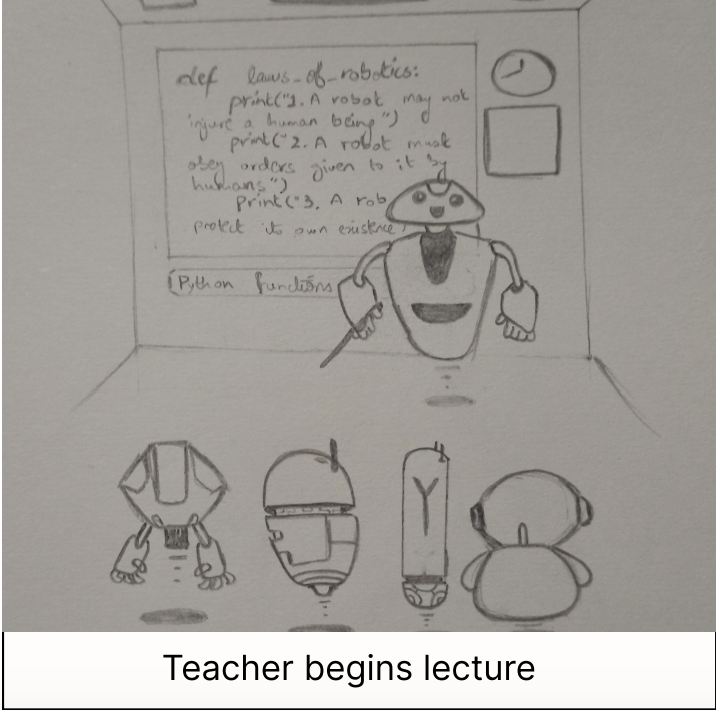 def laws_of_robotics:
print("1. A robot may not
injure a human being")
print("2. A robot must
obey orders given to it by
humans")
print("3. A rob
protect its own existence
Python functions
Y
Teacher begins lecture